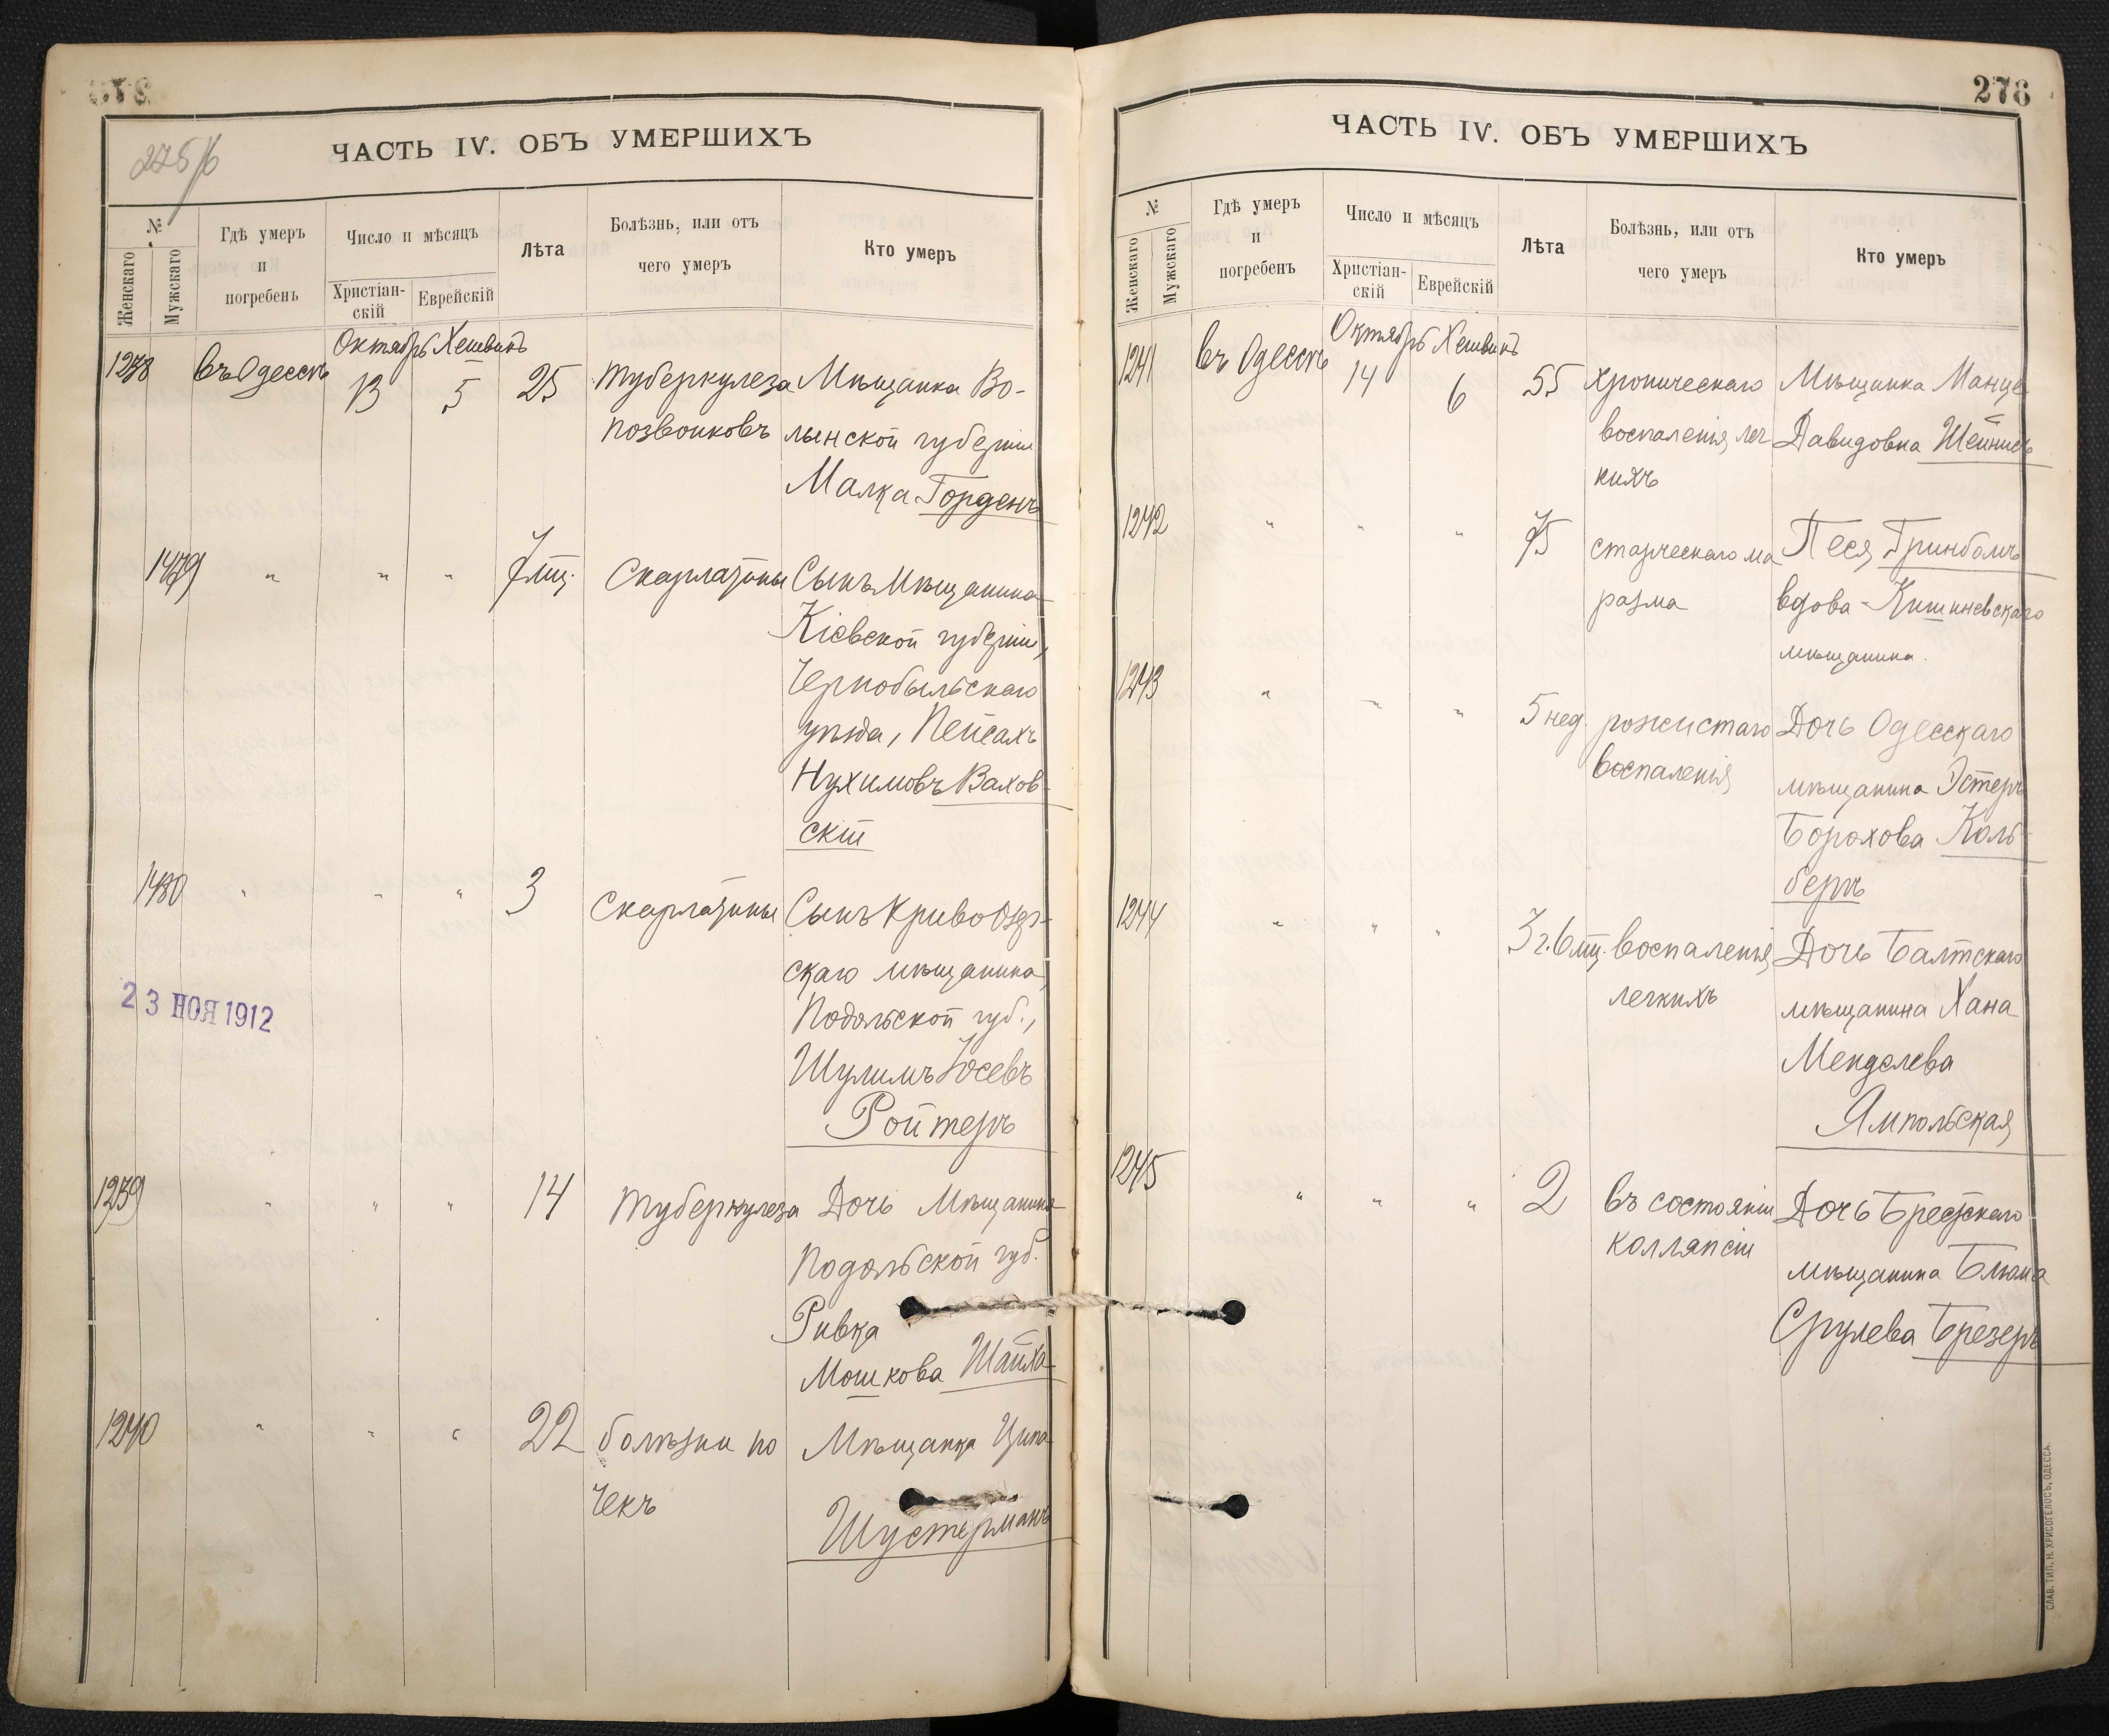 275/б
ЧАСТЬ IV. ОБЪ УМЕРШИХЪ
№
Женскаго
Мужскаго
Гдѣ умеръ
и
погребенъ
Число и мѣсяцъ
Христіан-
скій
Еврейскій
Лѣта
Болѣзнь, или отъ
чего умеръ
Кто умеръ
Октябрь Хешвинъ
1238 въ Одессѣ 13 5 25 туберкулеза Мѣщанка Во-
позвонковъ лынской губерніи
Малка Горденъ
1479 " " " 7 мц. Скарлатины Сынъ Мѣщанина
Кіевской губерніи,
Чернобыльскаго
уѣзда, Пейсахъ
Нухимовъ Вахов-
скій
1480 " " " 3 Скарлатины Сынъ Кривоозер-
скаго мѣщанина,
Подольской губ.,
Шулимъ Іосевъ
Ройтеръ
23 НОЯ 1912
1239 " " " 14 туберкулеза Дочь Мѣщанина
Подольской губ.
Ривка
Мошкова Шайха-
1240 " " " 22 болѣзни по Мѣщанка Ципа
чекъ
Шустерманъ
276
ЧАСТЬ IV. ОБЪ УМЕРШИХЪ
№
Женскаго
Мужскаго
Гдѣ умеръ
и
погребенъ
Число и мѣсяцъ
Христіан-
скій
Еврейскій
Лѣта
Болѣзнь, или отъ
чего умеръ
Кто умеръ
Октябрь Хешвинъ
1241 въ Одессѣ 14 6 55 хроническаго Мѣщанка Манця
воспаленія лег Давидовна
кихъ
1242 " " " 75 старческаго ма Песя Гринбомъ
разма вдова Кишиневскаго
мѣщанина.
1243 " " " 5 нед. рожистаго Дочь Одесскаго
воспаленія мѣщанина Эстеръ
Борохова Коль-
беръ
1244 " " " 3 г. 6 мц. воспаленія Дочь Балтскаго
легкихъ мѣщанина Хана
Менделева
Ямпольская
1245 " " " 2 въ состояніи Дочь Брестскаго
коллапсіи мѣщанина Блюма
Срулева Брезеръ
СЛАВ. ТИП. Н. ХРИСОГЕЛОСЪ, ОДЕССА.